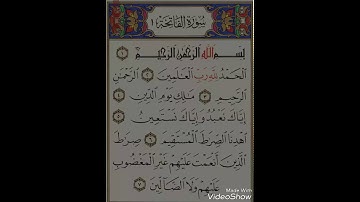 سُورَةُ الفَاتِحَةِ ١
بِسْمِ ٱللَّهِ ٱلرَّحْمَٰنِ ٱلرَّحِيمِ ١
ٱلْحَمْدُ لِلَّهِ رَبِّ ٱلْعَٰلَمِينَ ٢ ٱلرَّحْمَٰنِ
ٱلرَّحِيمِ ٣ مَٰلِكِ يَوْمِ ٱلدِّينِ ٤
إِيَّاكَ نَعْبُدُ وَإِيَّاكَ نَسْتَعِينُ ٥
ٱهْدِنَا ٱلصِّرَٰطَ ٱلْمُسْتَقِيمَ ٦ صِرَٰطَ
ٱلَّذِينَ أَنْعَمْتَ عَلَيْهِمْ غَيْرِ ٱلْمَغْضُوبِ
عَلَيْهِمْ وَلَا ٱلضَّآلِّينَ ٧
Made With
VideoShow